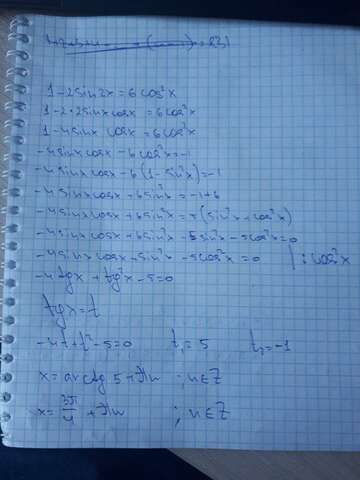 1-2sin2x=6cos²x
1-2·2sinxcosx=6cos²x
1-4sinx cosx=6cos²x
-4sinxcosx-6cos²x=-1
-4sinxcosx-6(1-sin²x)=-1
-4sinxcosx+6sin²x=-1+6
-4sinxcosx+6sin²x=5(sin²x+cos²x)
-4sinxcosx+6sin²x-5sin²x-5cos²x=0
-4sinxcosx+sin²x-5cos²x=0 |:cos²x
-4tgx+tg²x-5=0
tgx=t
-4t+t²-5=0 t₁=5 t₂=-1
x=arctg5+πn ; n∈Z
x=3π/4+πn ; n∈Z